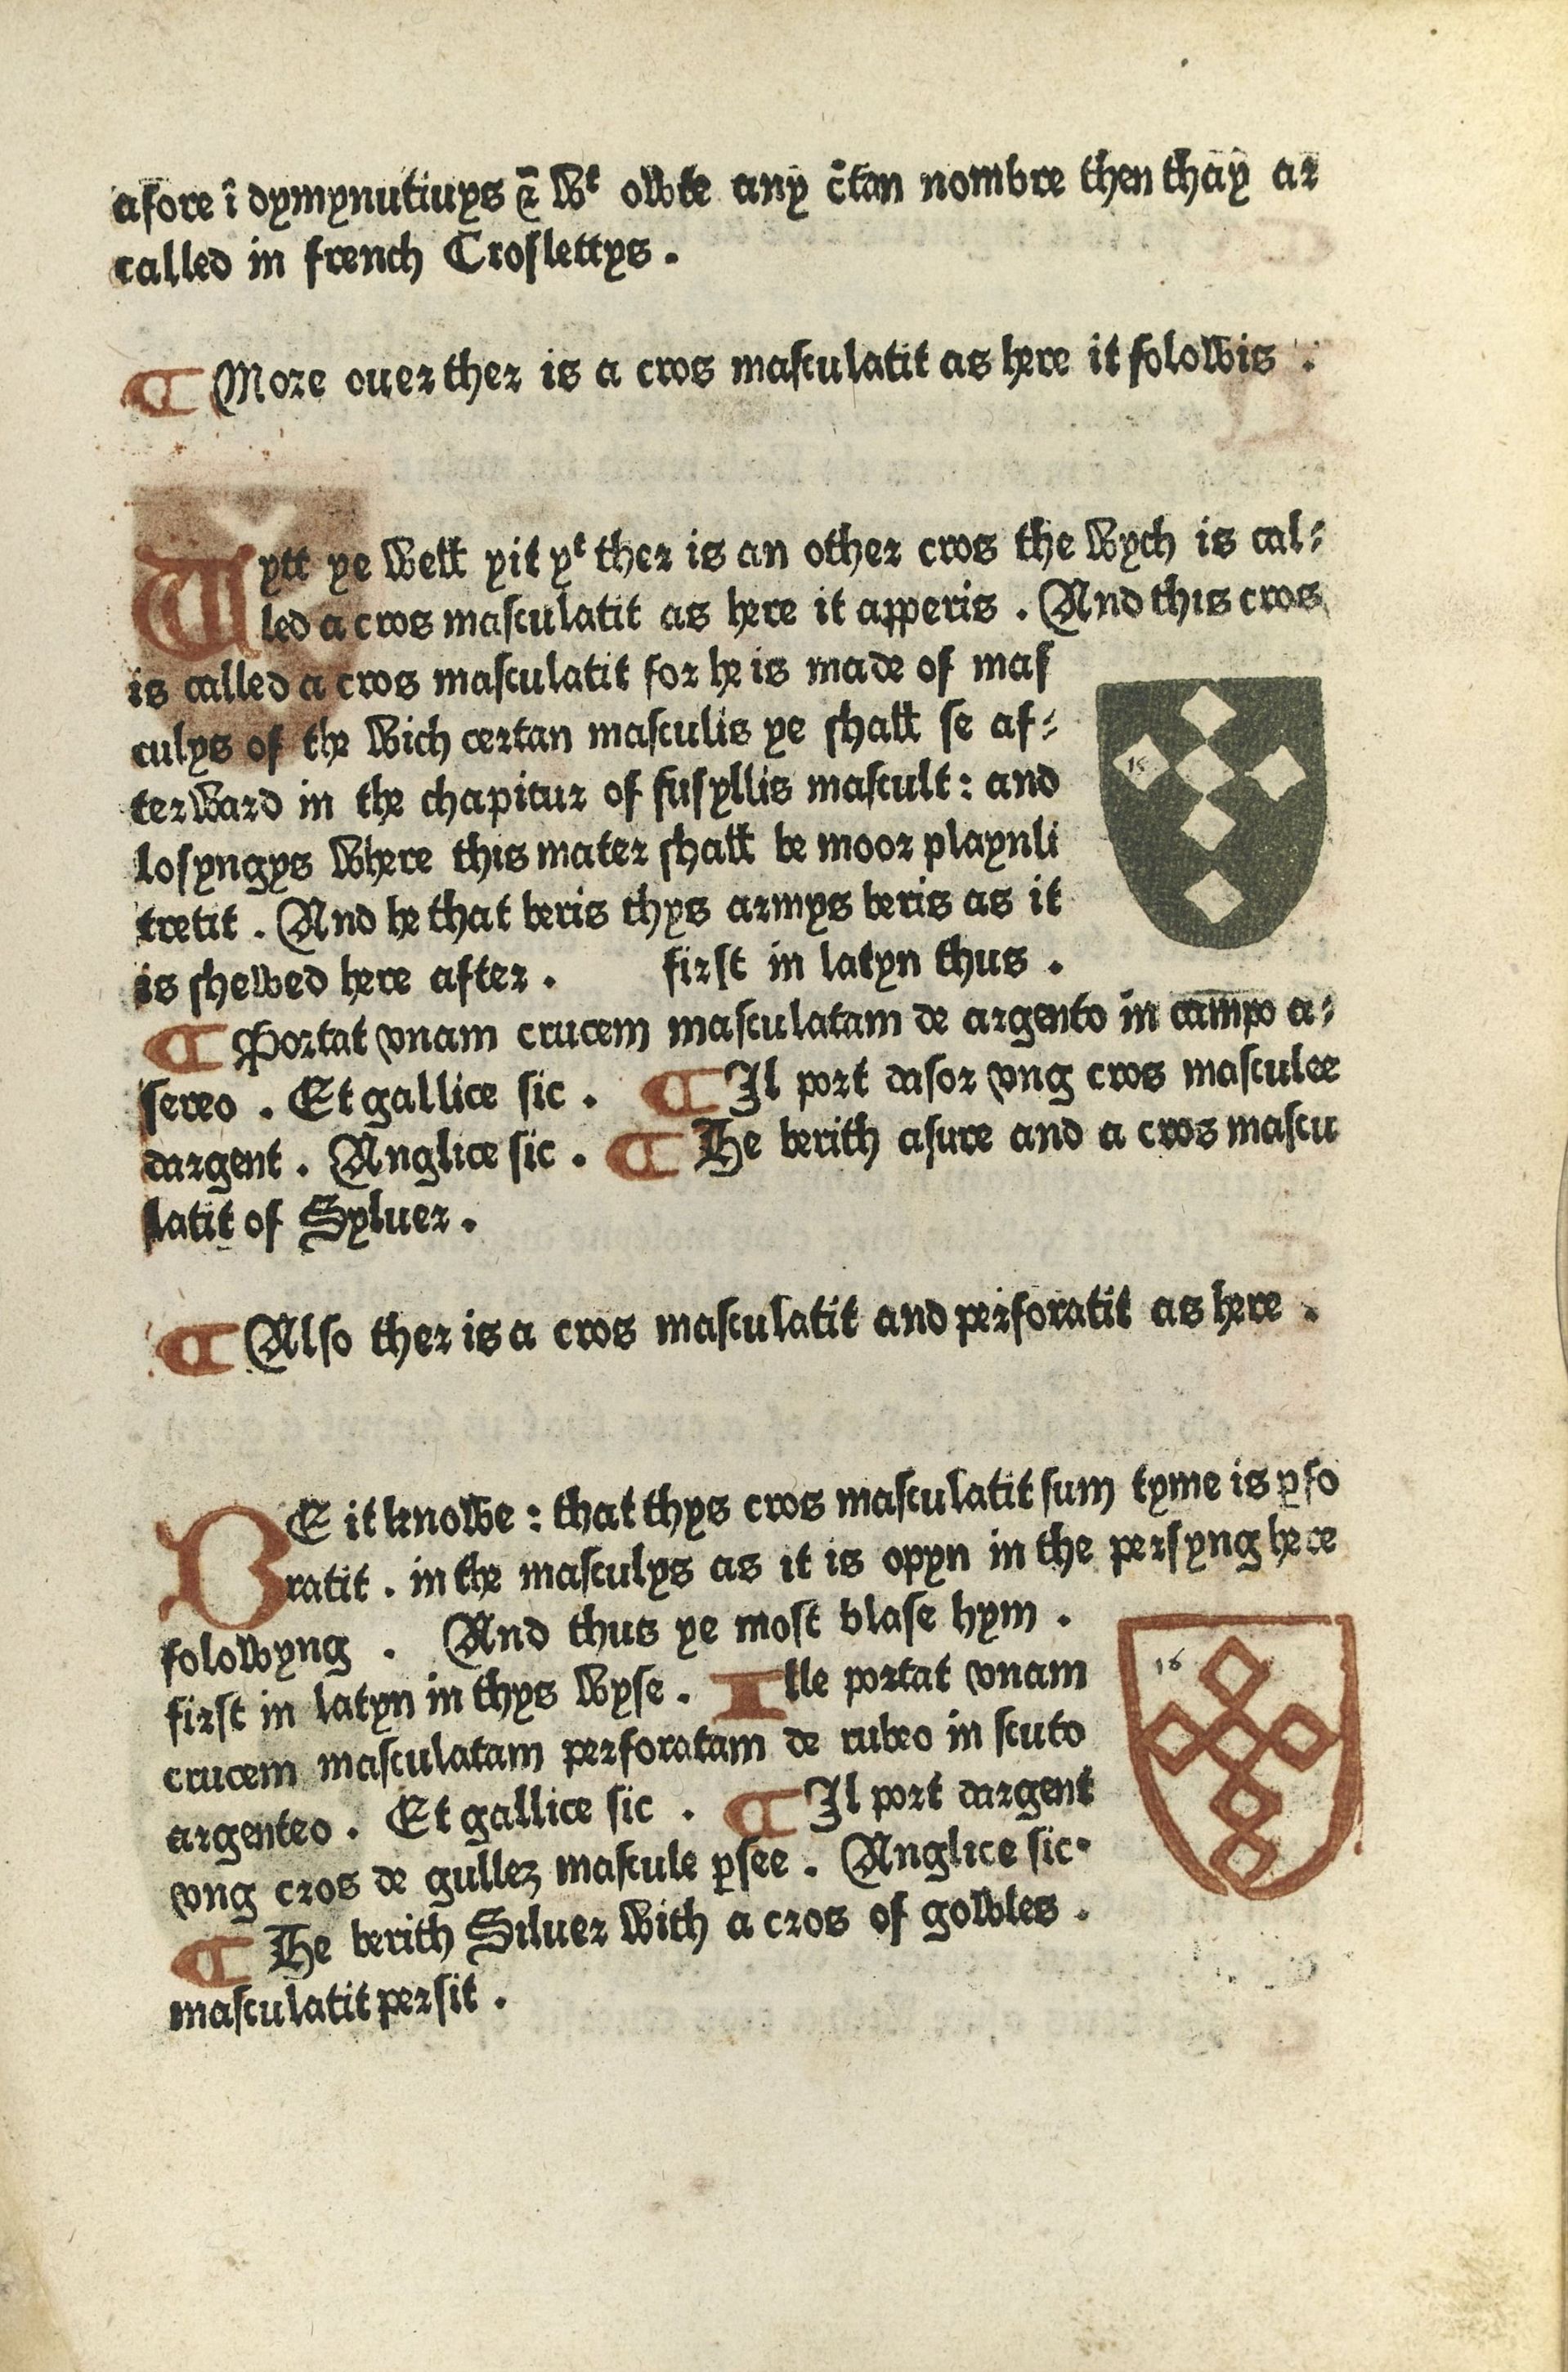 afore ī dymynutiuys & wᵗ owte any c̄tan nombre then thay ar
called in french Croslettys .
¶ More ouer ther is a cros masculatit as here it folowis .
Wytt ye well yit yᵗ ther is an other cros the wych is cal-
led a cros masculatit as here it apperis . And this cros
is called a cros masculatit for he is made of mas
culys of the wich certan masculis ye shall se af-
terward in the chapitur of fusyllis mascult : and
losyngys where this mater shall be moor playnli
tretit . And he that beris thys armys beris as it
is shewed here after . first in latyn thus .
15
¶ Portat vnam crucem masculatam de argento in campo a-
sereo . Et gallice sic . ¶ Il port dasor vng cros masculee
dargent . Anglice sic . ¶ He berith asure and a cros mascu
latit of Syluer .
¶ Also ther is a cros masculatit and perforatit as here .
BE it knowe : that thys cros masculatit sum tyme is ꝑfo
ratit . in the masculys as it is opyn in the persyng here
folowyng . And thus ye most blase hym .
first in latyn in thys wyse . Ille portat vnam
crucem masculatam perforatam de rubeo in scuto
argenteo . Et gallice sic . ¶ Il port dargent
vng cros de gullez mascule ꝑsee . Anglice sic .
¶ He berith Siluer with a cros of gowles .
masculatit persit .
16